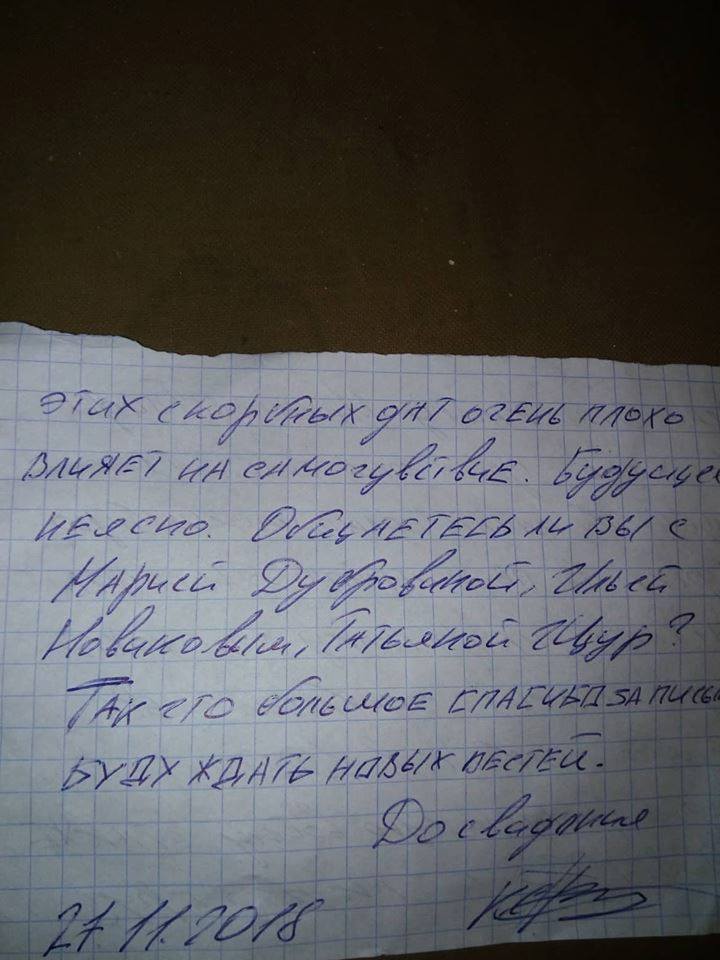 этих скорбных дат очень плохо
влияет на самочувствие. Будуще
неясно. Общаетесь ли вы с
Марией Дубровиной, Ильей
Новиковым, Татьяной Щур?
Так что большое спасибо за письм
Буду ждать новых вестей.
До свидания
27.11.2018